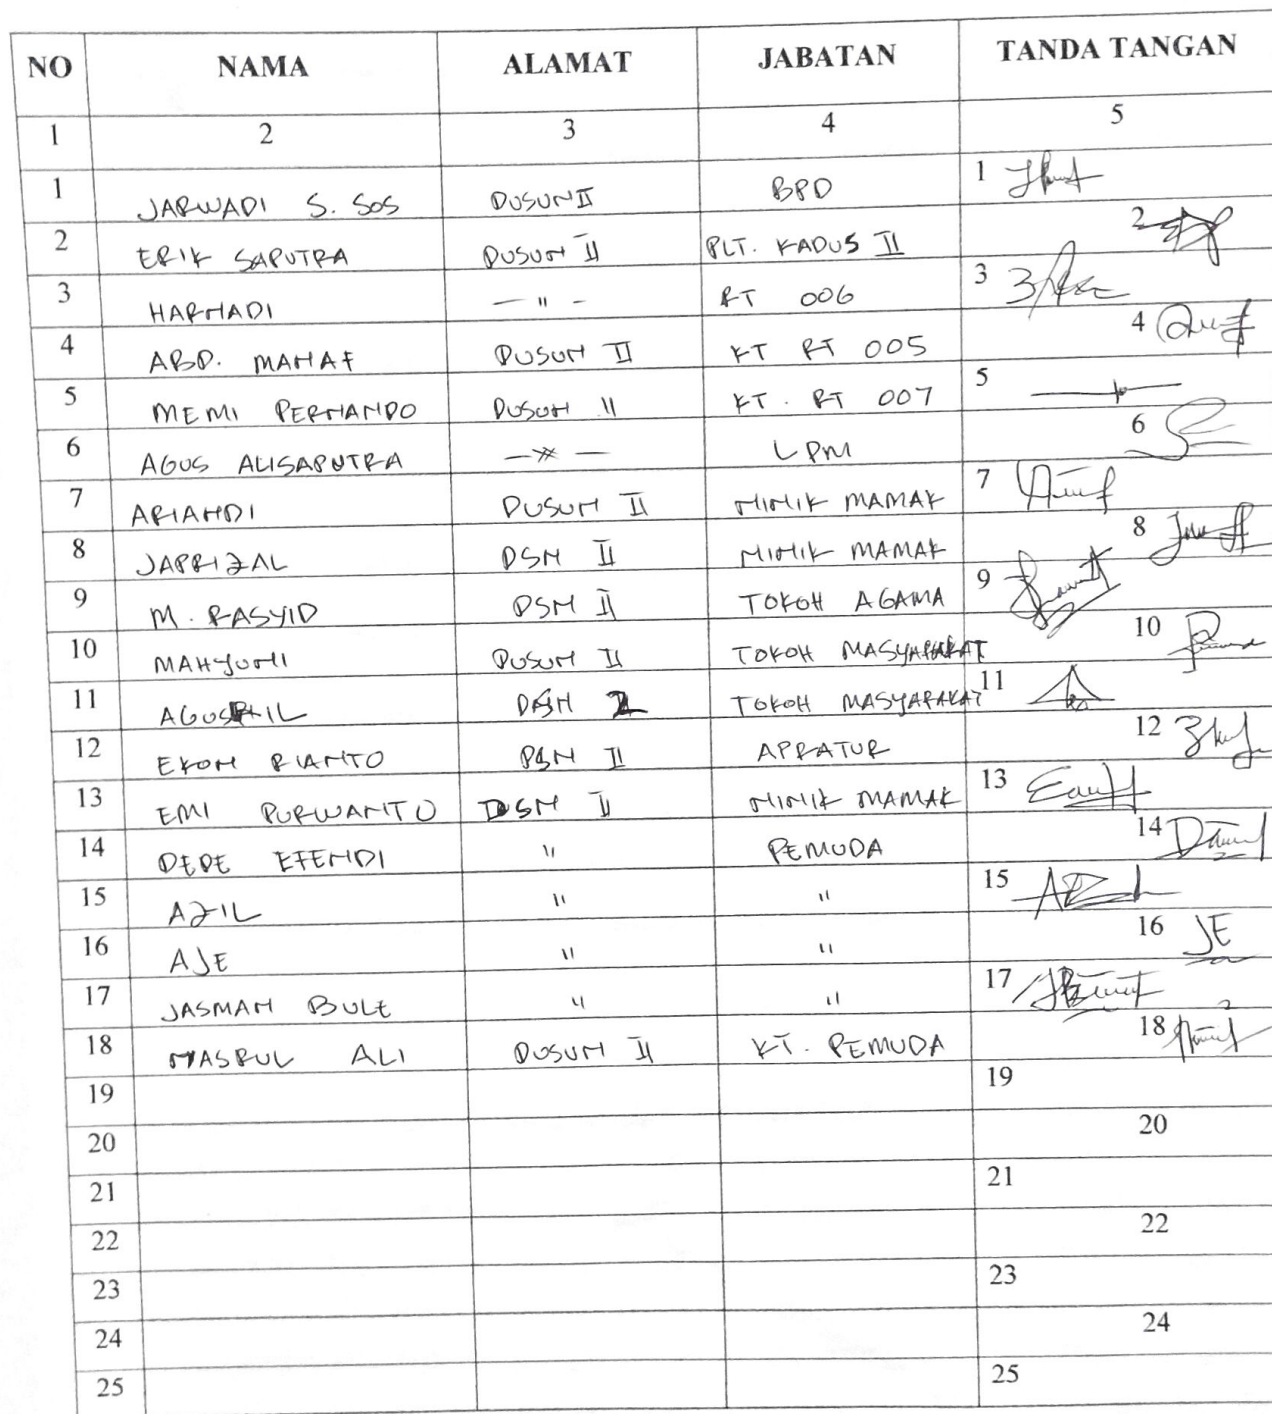 NO NAMA ALAMAT JABATAN TANDA TANGAN
1 2 3 4 5
1 JARWADI S. SOS DUSUN II BPD 1
2 ERIK SAPUTRA DUSUN II PLT. KADUS II 2
3 HARNADI — " - RT 006 3
4 ABD. MANAF DUSUN II KT RT 005 4
5 MEMI PERNANDO DUSUN II KT. RT 007 5
6 AGUS ALISAPUTRA — " — LPM 6
7 ARIANDI DUSUN II NINIK MAMAK 7
8 JAPRIZAL DSN II NINIK MAMAK 8
9 M. RASYID DSN II TOKOH AGAMA 9
10 MAHYUNI DUSUN II TOKOH MASYARAKAT 10
11 DSN 2 TOKOH MASYARAKAT 11
12 EKON RIANTO DSN II APRATUR 12
13 EMI PURWANTO DSN II NINIK MAMAK 13
14 DEDE EFENDI " PEMUDA 14
15 AZIL " " 15
16 AJE " " 16 JE
17 JASMAN BULE " " 17
18 NASRUL ALI DUSUN II KT. PEMUDA 18
19 19
20 20
21 21
22 22
23 23
24 24
25 25